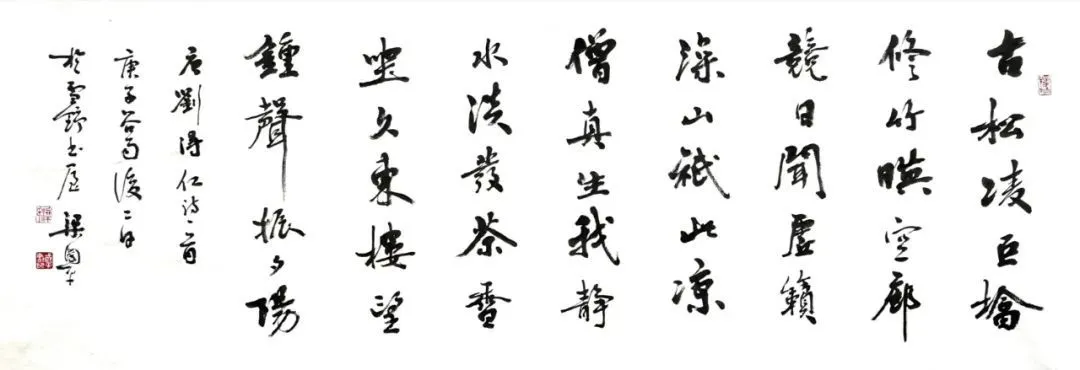 古松凌巨墖
修竹暎空廊
競日聞虛籟
深山祇此凉
僧真生我静
水淡發茶香
坐久東樓望
鍾聲振夕陽
唐劉得仁詩一首
庚子谷雨後二日
於雪书屋 梁平